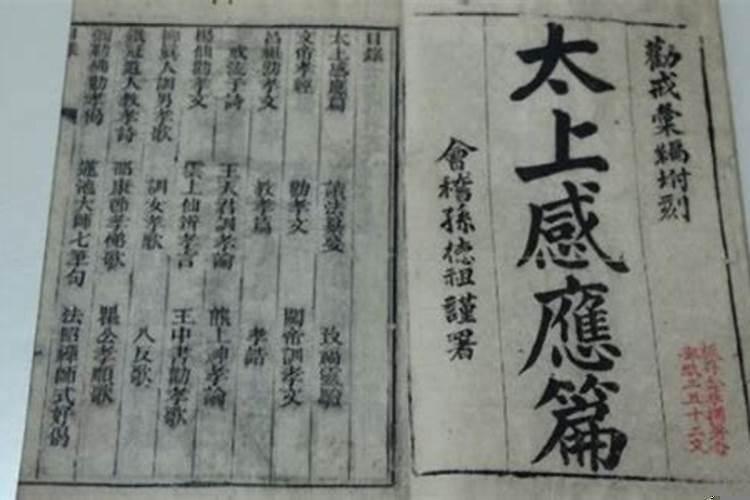 勸戒彙編坿刻
太上感應篇
會稽孫德祖謹署
目錄
太上感應篇
讀法纂要
致福靈驗
文帝孝經
勸孝文
關帝訓孝文
呂祖勸孝文
教孝篇
孝誥
戒淫子詩
王天君訓孝論
熊上神孝論
楊仙勸孝文
雲上仙辨孝言
王中書勸孝歌
訓男孝歌
訓女孝歌
八反歌
鐵冠道人教孝詩
邵康節孝悌歌
瞿公孝順歌
彌勒佛勸孝偈
蓮池大師七筆句
法照禪師式好偈
目錄